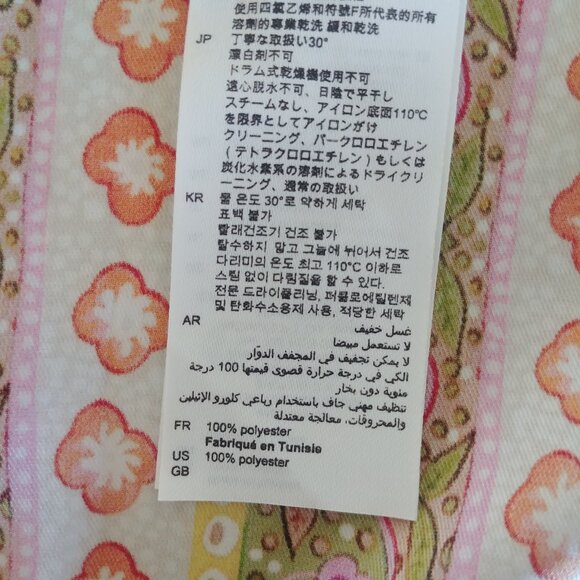 使用四氯乙烯和符號F所代表的所有
溶劑的專業乾洗 緩和乾洗
JP 丁寧な取扱い30°
漂白剤不可
ドラム式乾燥機使用不可
遠心脱水不可、日陰で平干し
スチームなし、アイロン底面110℃
を限界としてアイロンがけ
クリーニング、パークロロエチレン
(テトラクロロエチレン)もしくは
炭化水素系の溶剤によるドライクリ
ーニング、通常の取扱い
KR 물 온도 30°로 약하게 세탁
표백 불가
빨래건조기 건조 불가
탈수하지 말고 그늘에 뉘어서 건조
다리미의 온도 최고 110°C 이하로
스팀 없이 다림질을 할 수 있다.
전문 드라이플리닝, 퍼클로에틸렌제
및 탄화수소용제 사용, 적당한 세탁
AR غسل خفيف
لا تستعمل مبيضا
لا يمكن تجفيف في المجفف الدوّار
الكي في درجة حرارة قصوى قيمتها 100 درجة
مئوية دون بخار
تنظيف مهني جاف باستخدام رباعي كلورو الإتيلين
والمحروقات، معالجة معتدلة
FR 100% polyester
Fabriqué en Tunisie
US 100% polyester
GB